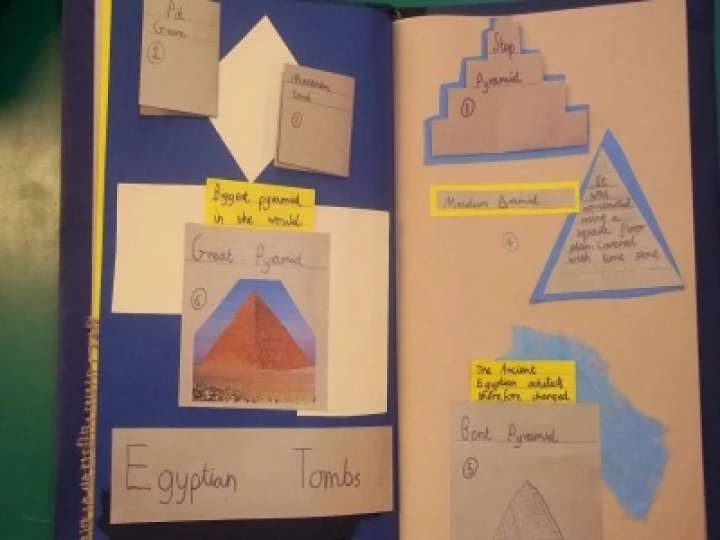 Pit
Grave
1
Mastaba
Tomb
2
Biggest pyramid
in the world
Great Pyramid
6
Egyptian Tombs
Step
Pyramid
Meidum Pyramid
4
It
was
constructed
using a
square floor
plan. Covered
with lime stone
The Ancient
Egyptian
therefore changed
Bent Pyramid
5